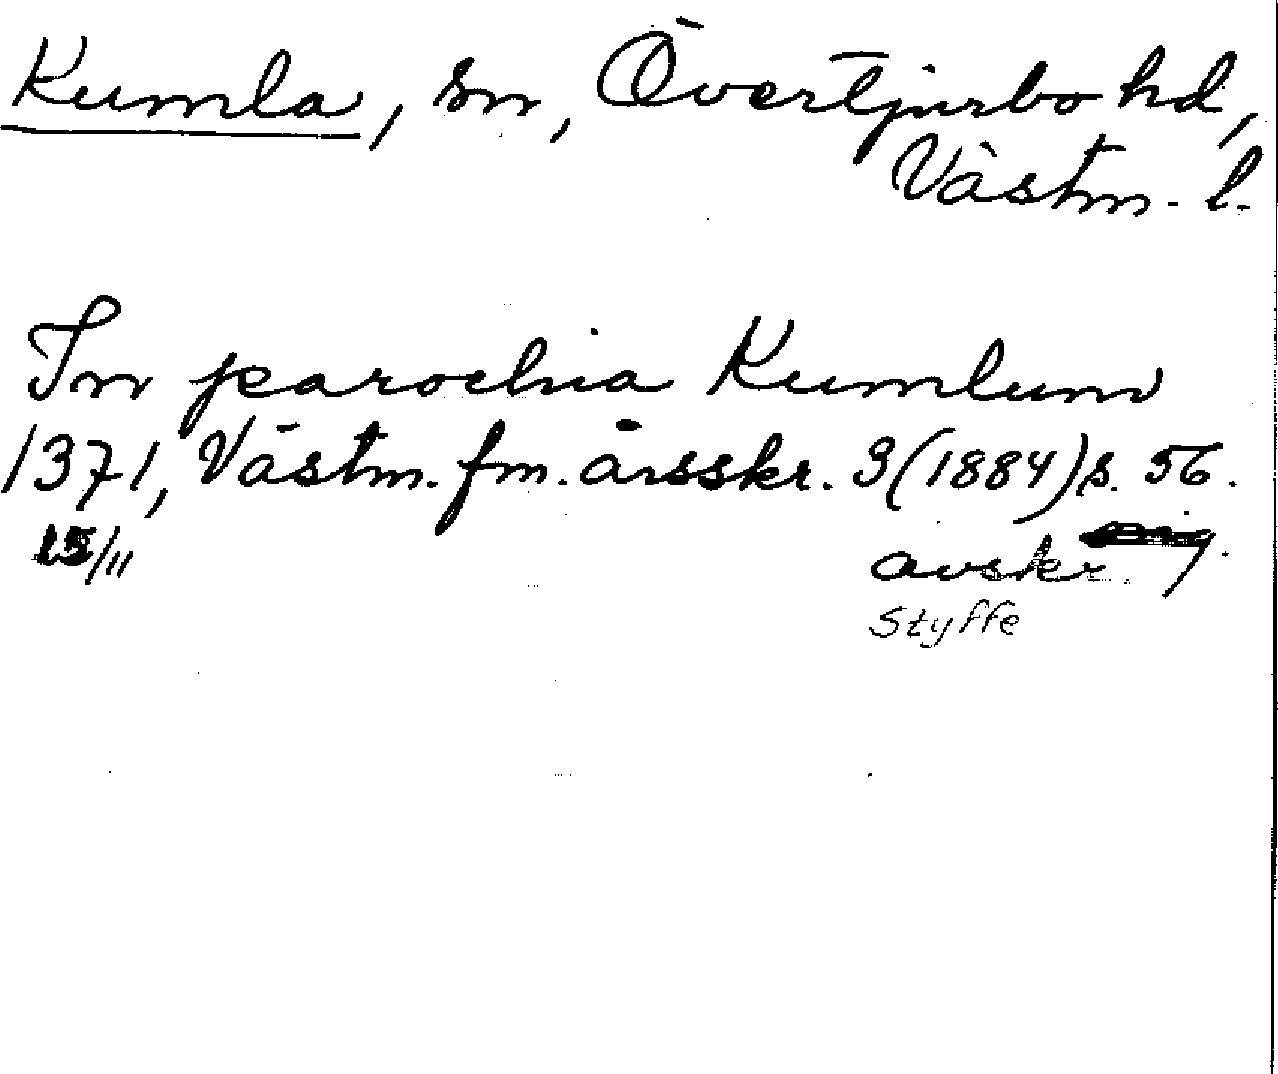 Kumla, sn, Övertjurbo hd,
Västm. l.
In parochia Kumlum
1371, Västm. fm. årsskr. 3 (1884) s. 56.
15/11
avskr.
Styffe